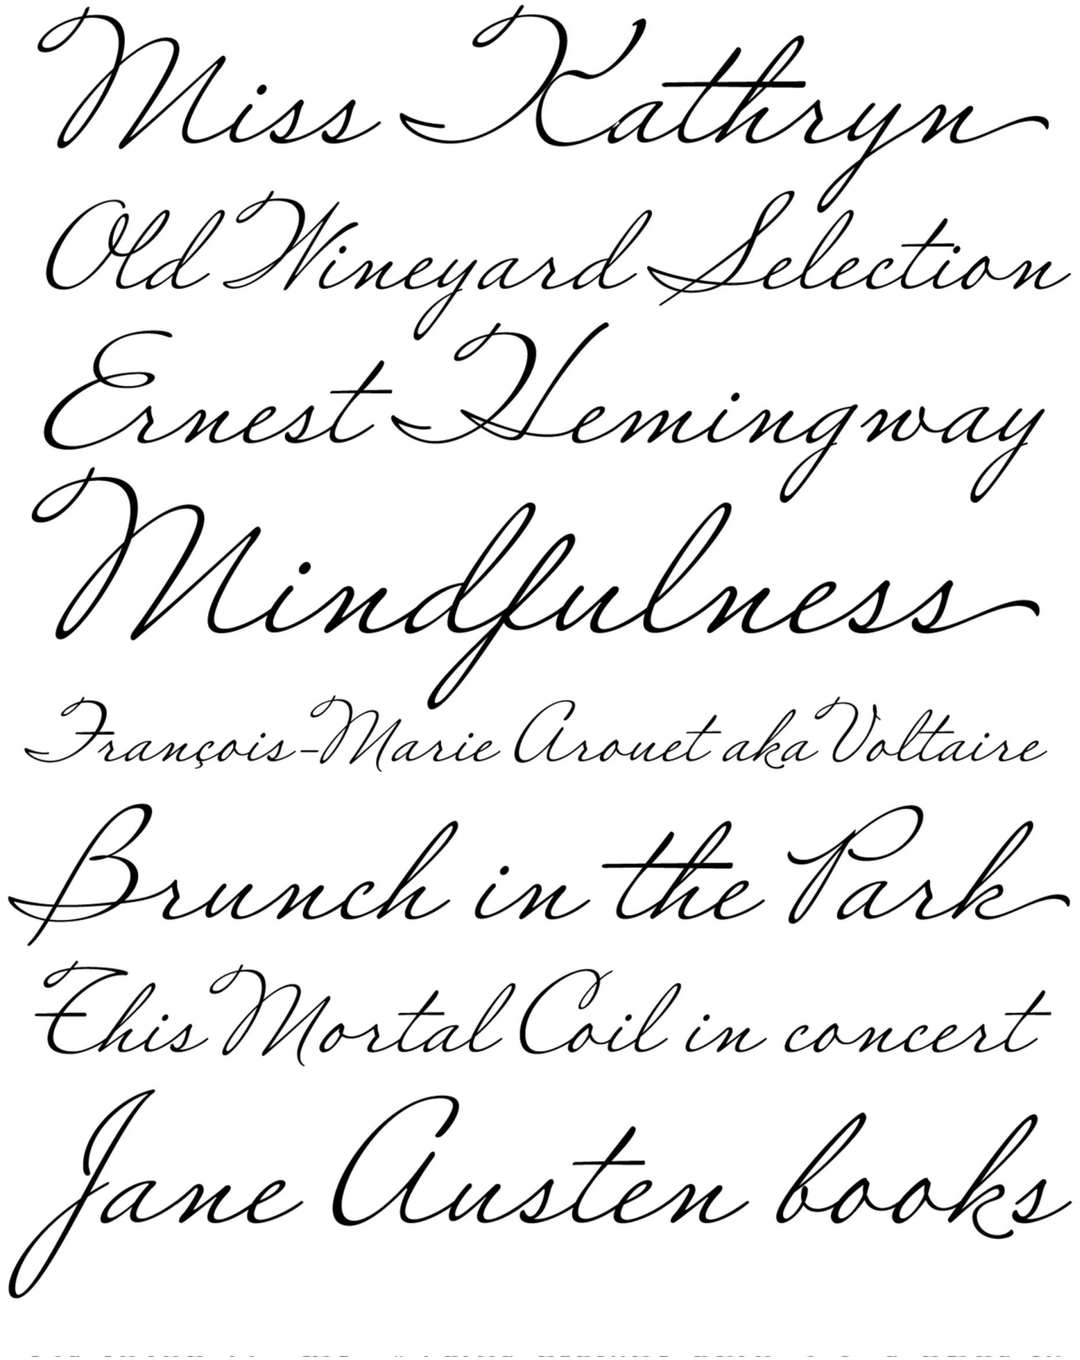 Miss Kathryn
Old Wineyard Selection
Ernest Hemingway
Mindfulness
François-Marie Arouet aka Voltaire
Brunch in the Park
This Mortal Coil in concert
Jane Austen books